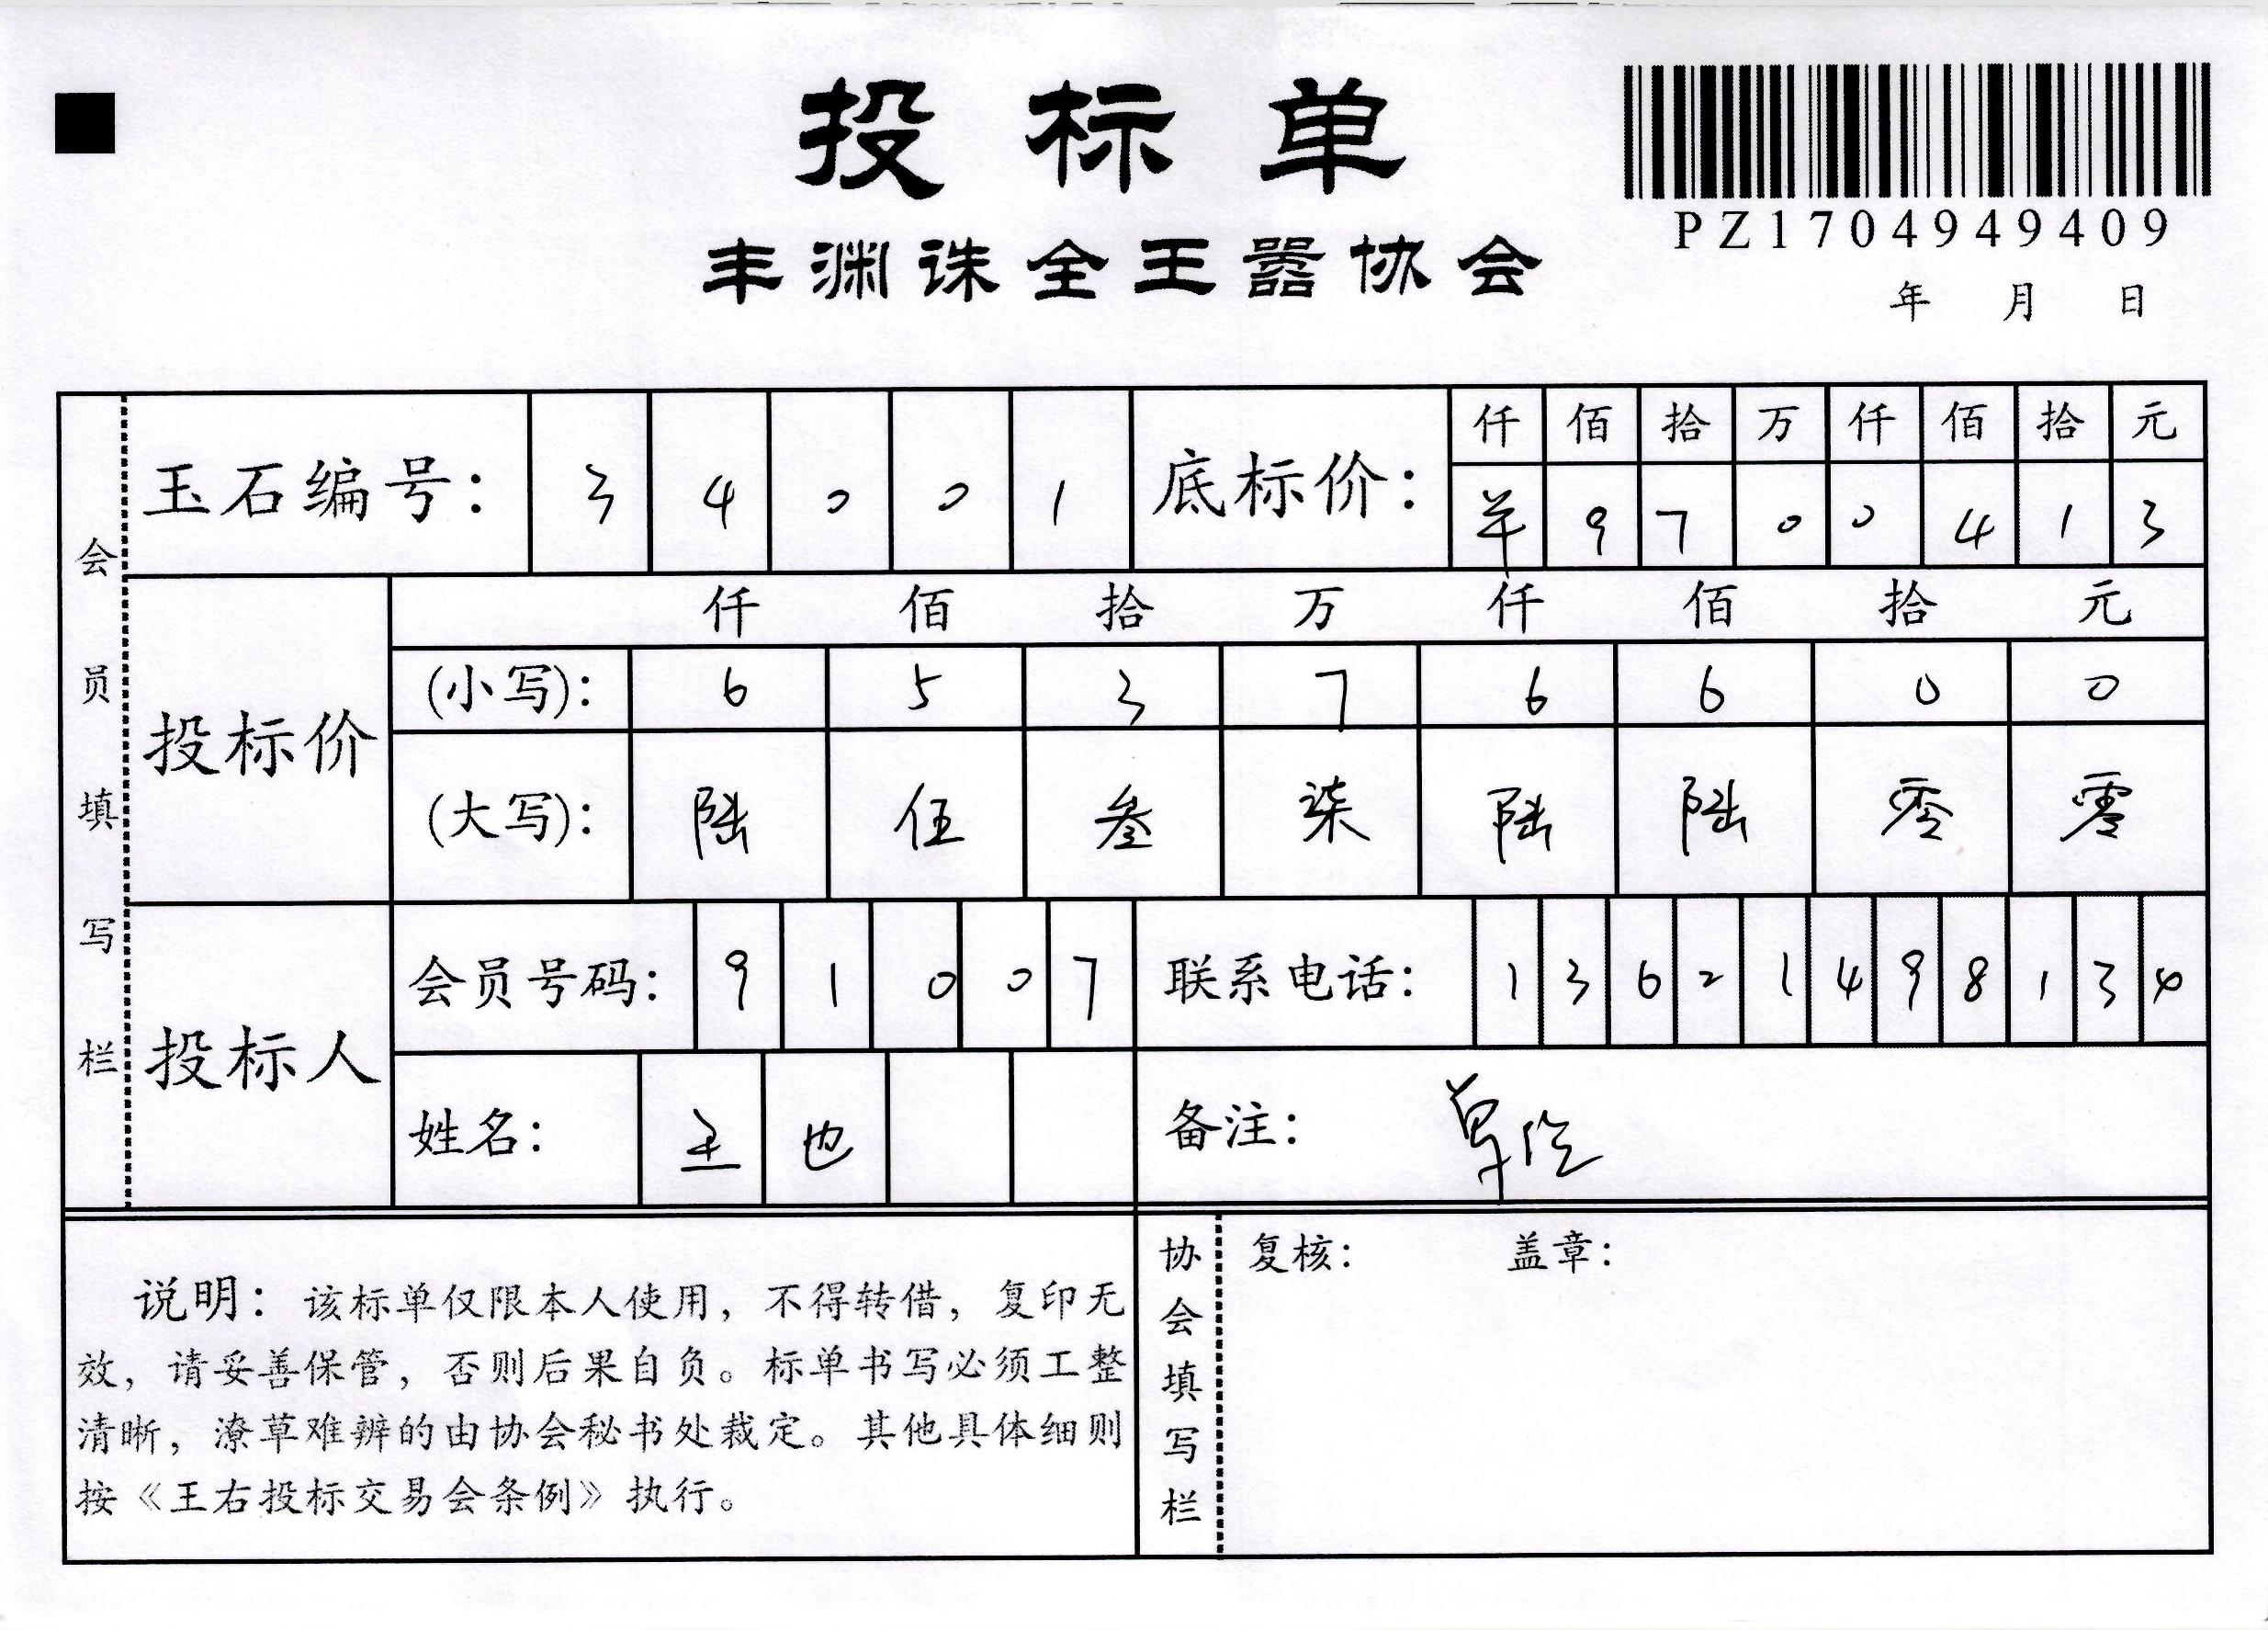 投标单
PZ1704949409
丰渊诛全王嚣协会
年 月 日
会员填写栏
玉石编号： 3 4 0 0 1
底标价：
仟 佰 拾 万 仟 佰 拾 元
9 7 0 0 4 1 3
投标价
仟 佰 拾 万 仟 佰 拾 元
(小写)： 6 5 3 7 6 6 0 0
(大写)： 陆 伍 叁 柒 陆 陆 零 零
投标人
会员号码： 9 1 0 0 7
联系电话： 1 3 6 2 1 4 9 8 1 3 4
姓名： 王 也
备注：
说明：该标单仅限本人使用，不得转借，复印无
效，请妥善保管，否则后果自负。标单书写必须工整
清晰，潦草难辨的由协会秘书处裁定。其他具体细则
按《王右投标交易会条例》执行。
协会填写栏
复核： 盖章：